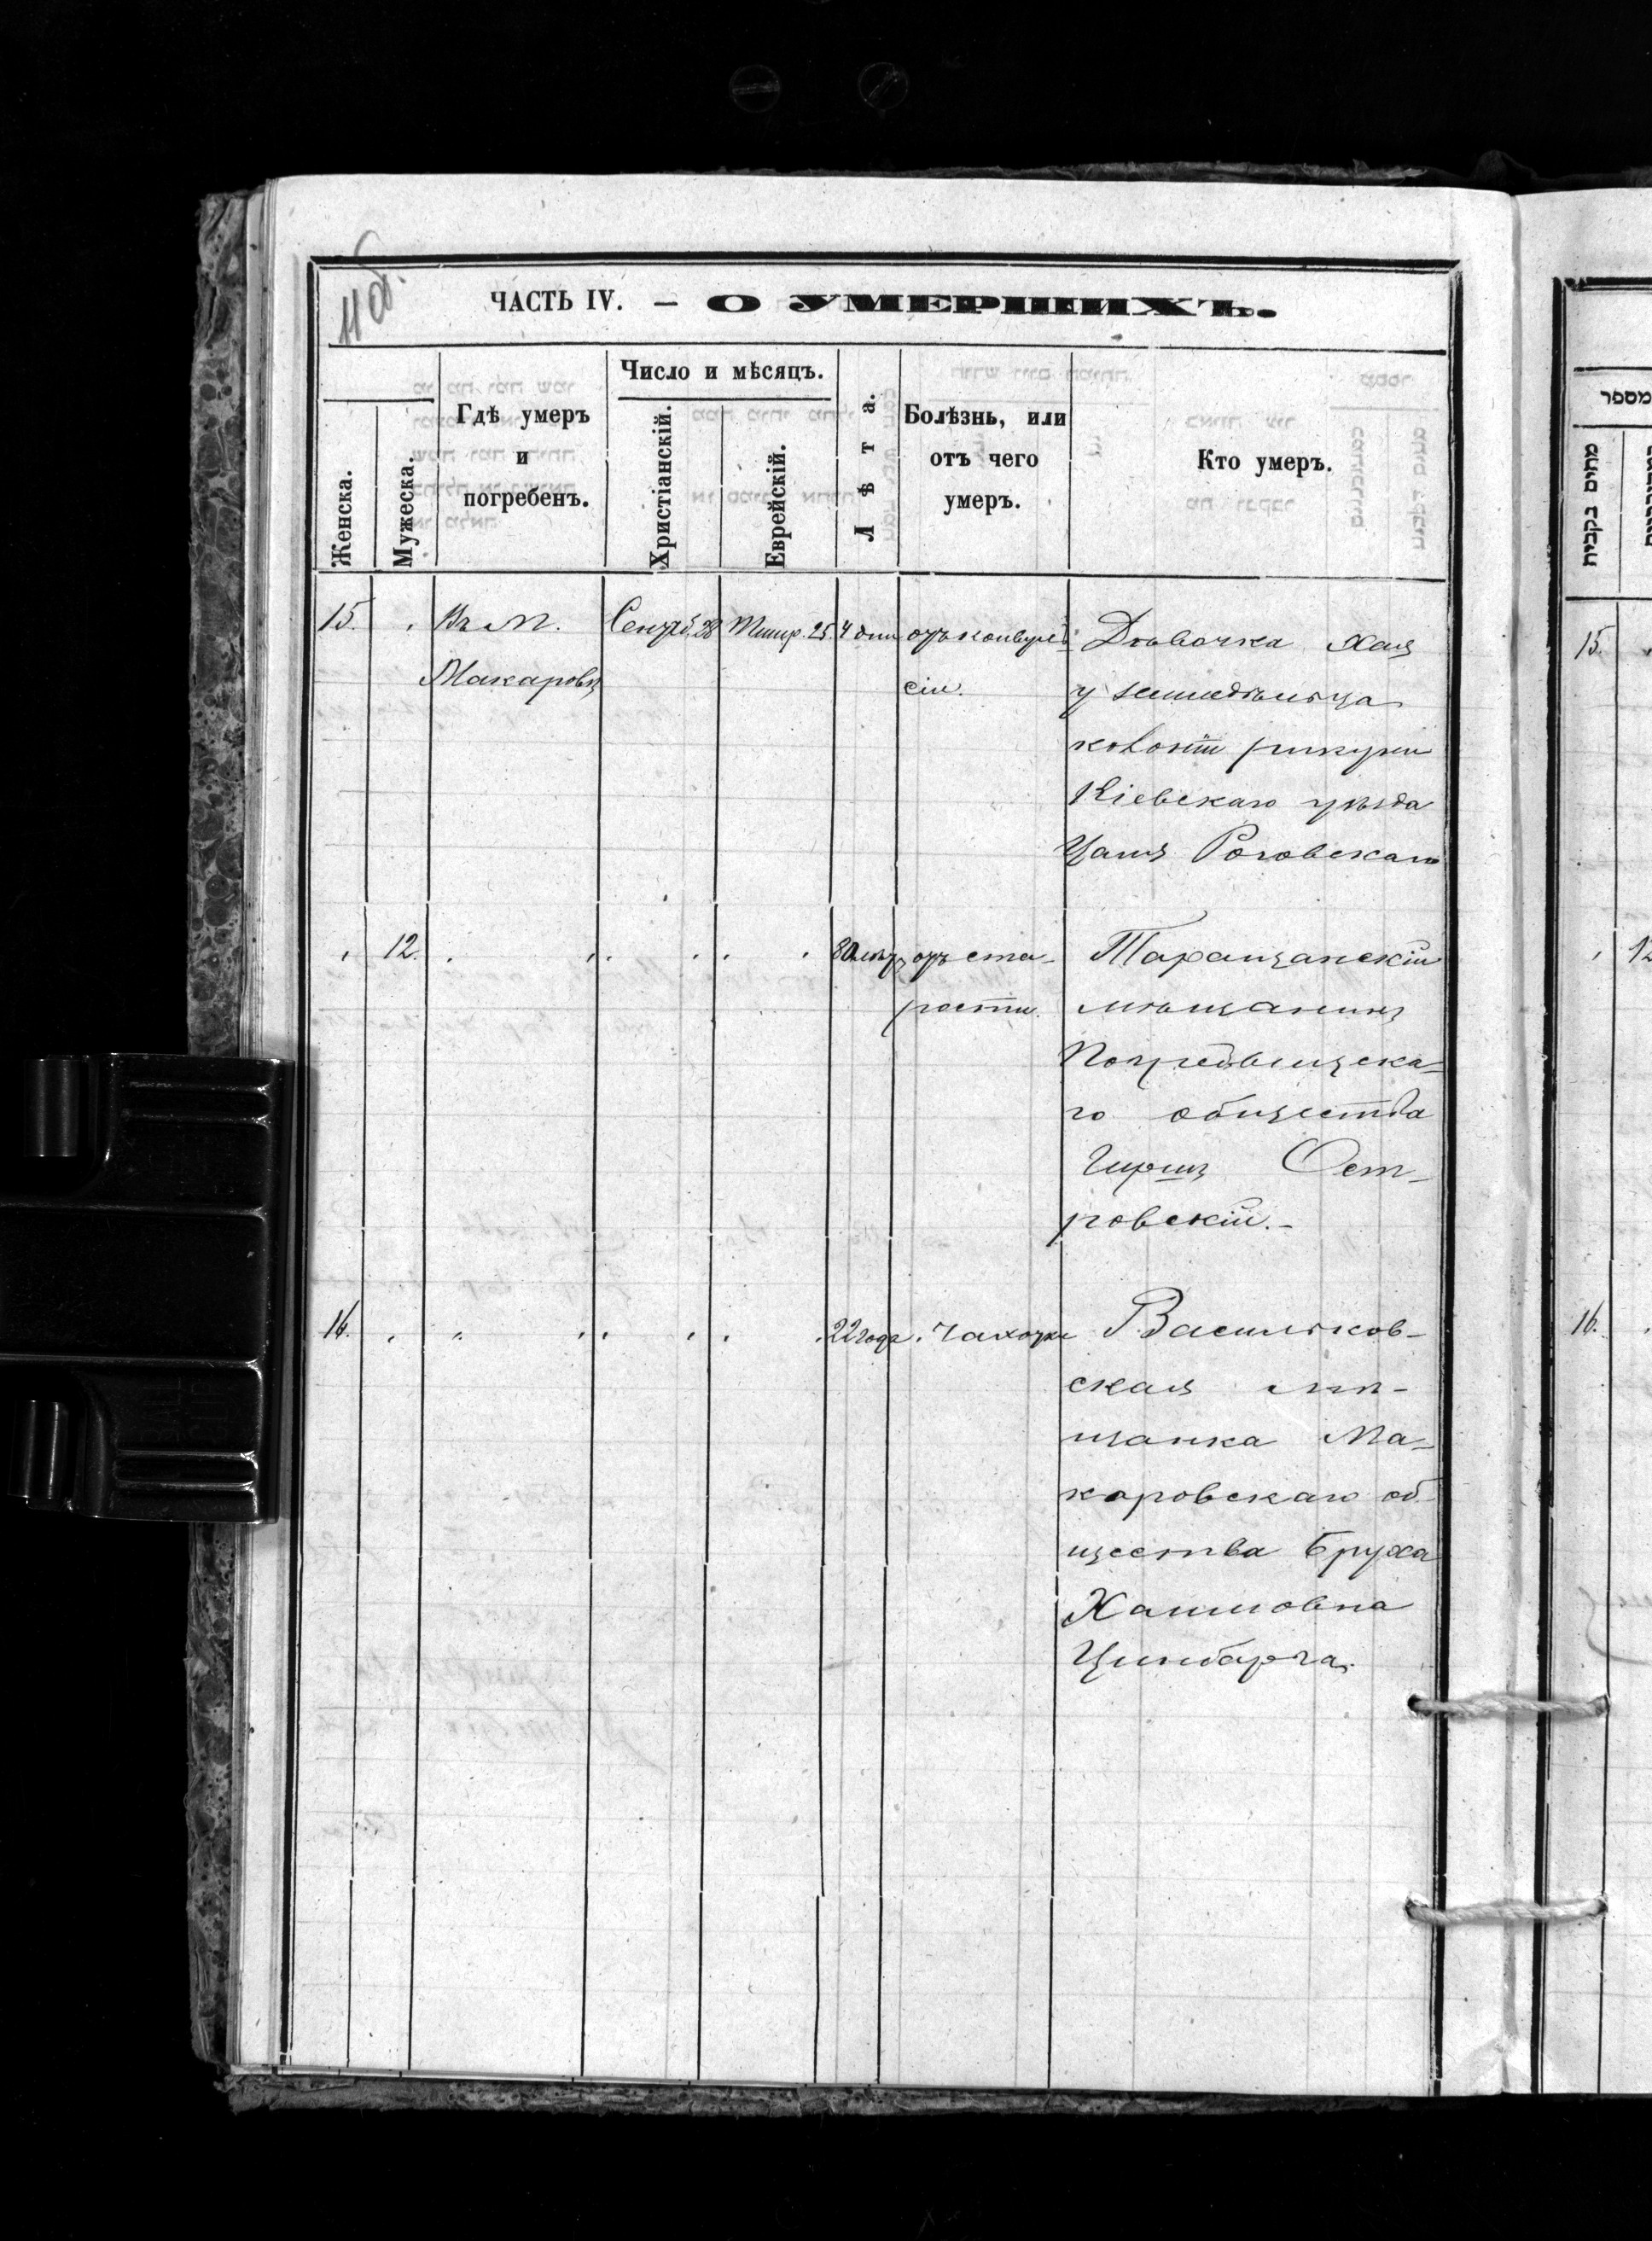 11 об.
ЧАСТЬ IV. — О УМЕРШИХЪ.
Женска.
Мужеска.
Гдѣ умеръ
и
погребенъ.
Число и мѣсяцъ.
Христіанскій.
Еврейскій.
Лѣта.
Болѣзнь, или
отъ чего
умеръ.
Кто умеръ.
15. " Въ М. Сентяб. 28 Тишр. 25. 4 дни отъ конвуль- Дѣвочка Хая
Макаровѣ сіи. у земледѣльца
колоніи
Кіевскаго уѣзда
Роговскаго
" 12. " " " " " 80 лѣтъ отъ ста- Таращанскій
рости. мѣщанинъ
Погребищска-
го общества
Гершъ Ост-
ровскій.-
16. " " " " " " 22 года. Чахотки Васильков-
ская мѣ-
щанка Ма-
каровскаго об-
щества Бруха
Хаимовна
Цимбарга.
מספר
מתים נקבות
15.
" 12
16.